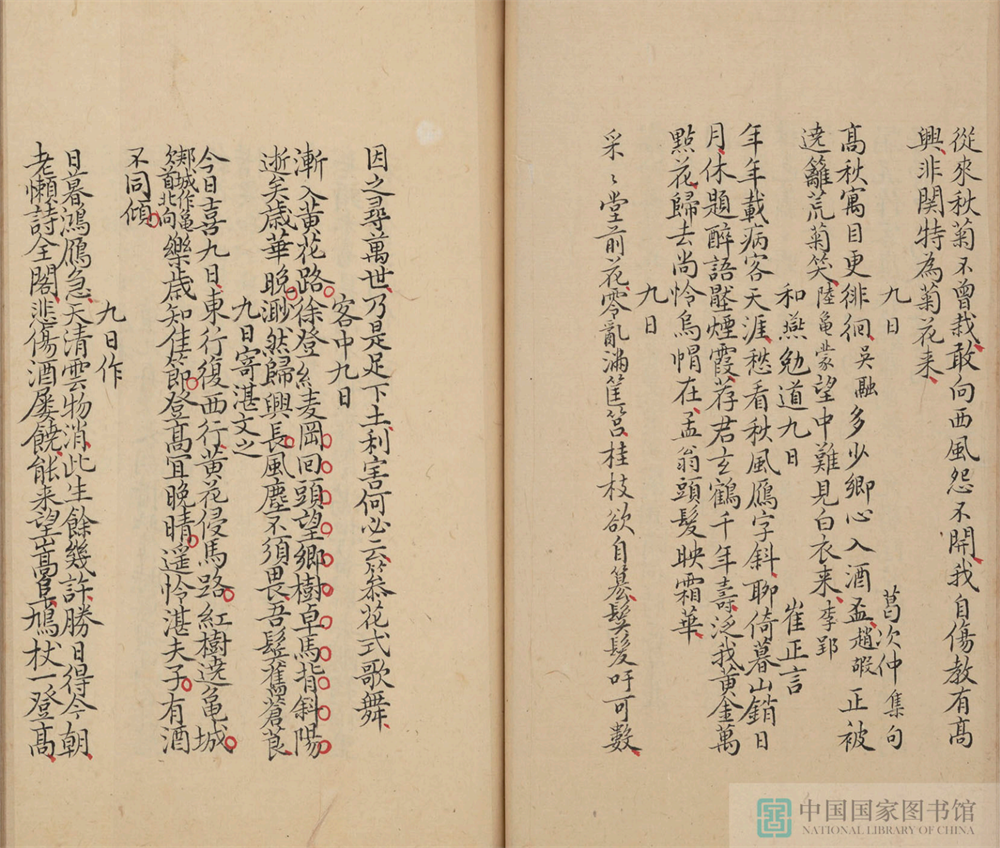 從來秋菊不曾栽敢向西風怨不開我自傷教有高
興非関特為菊花来
九日　葛次仲集句
高秋寓目更徘徊吴融多少鄉心入酒盃趙嘏正被
遶籬荒菊笑陸龜蒙望中難見白衣来李郢
和燕勉道九日　崔正言
年年載病客天涯愁看秋風鴈字斜聊倚暮山銷日
月休題醉語壓煙霞荐君玄鶴千年壽泛我黄金萬
點花歸去尚怜烏帽在孟翁頭髮映霜華
九日
采〻堂前花零亂滿筐筥桂枝欲自篹髮髮吁可數
因之尋萬世乃是足下土利害何必云恭花式歌舞
客中九日
漸入黄花路徐登紅麦岡回頭望鄉樹卓馬背斜陽
逝矣歳華晚渺然歸興長風塵不須畏吾髩舊蒼茛
九日寄湛文之
今日喜九日東行復西行黄花侵馬路紅樹遶龜城
邦城作龜欠首北向樂歳知佳節登高宜晚晴遥怜湛夫子有酒
不同傾
九日作
日暮鴻鴈急天清雲物消此生餘幾許勝日得今朝
老懶詩全閣悲傷酒屡饒能来望嵩阜鳩杖一登高
中国国家图书馆
NATIONAL LIBRARY OF CHINA